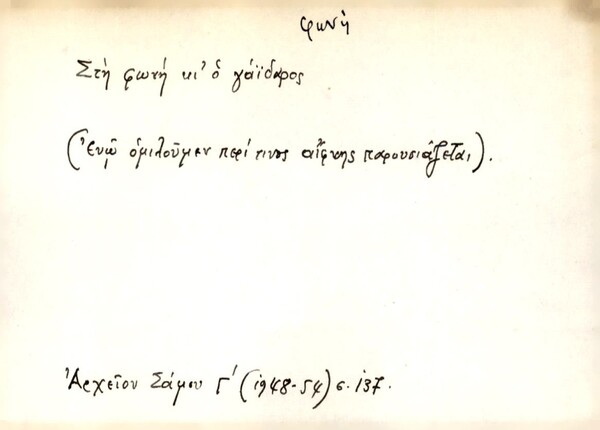 φωνή
Στὴ φωνή κι' ὁ γάϊδαρος
(Ἐνῷ ὁμιλοῦμεν περί τινος αἴφνης παρουσιάζεται).
Ἀρχεῖον Σάμου Γ' (1948-54) σ. 137.